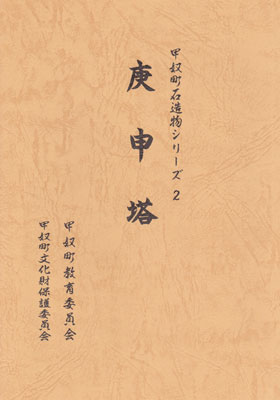 甲奴町石造物シリーズ 2
庚申塔
甲奴町教育委員会
甲奴町文化財保護委員会